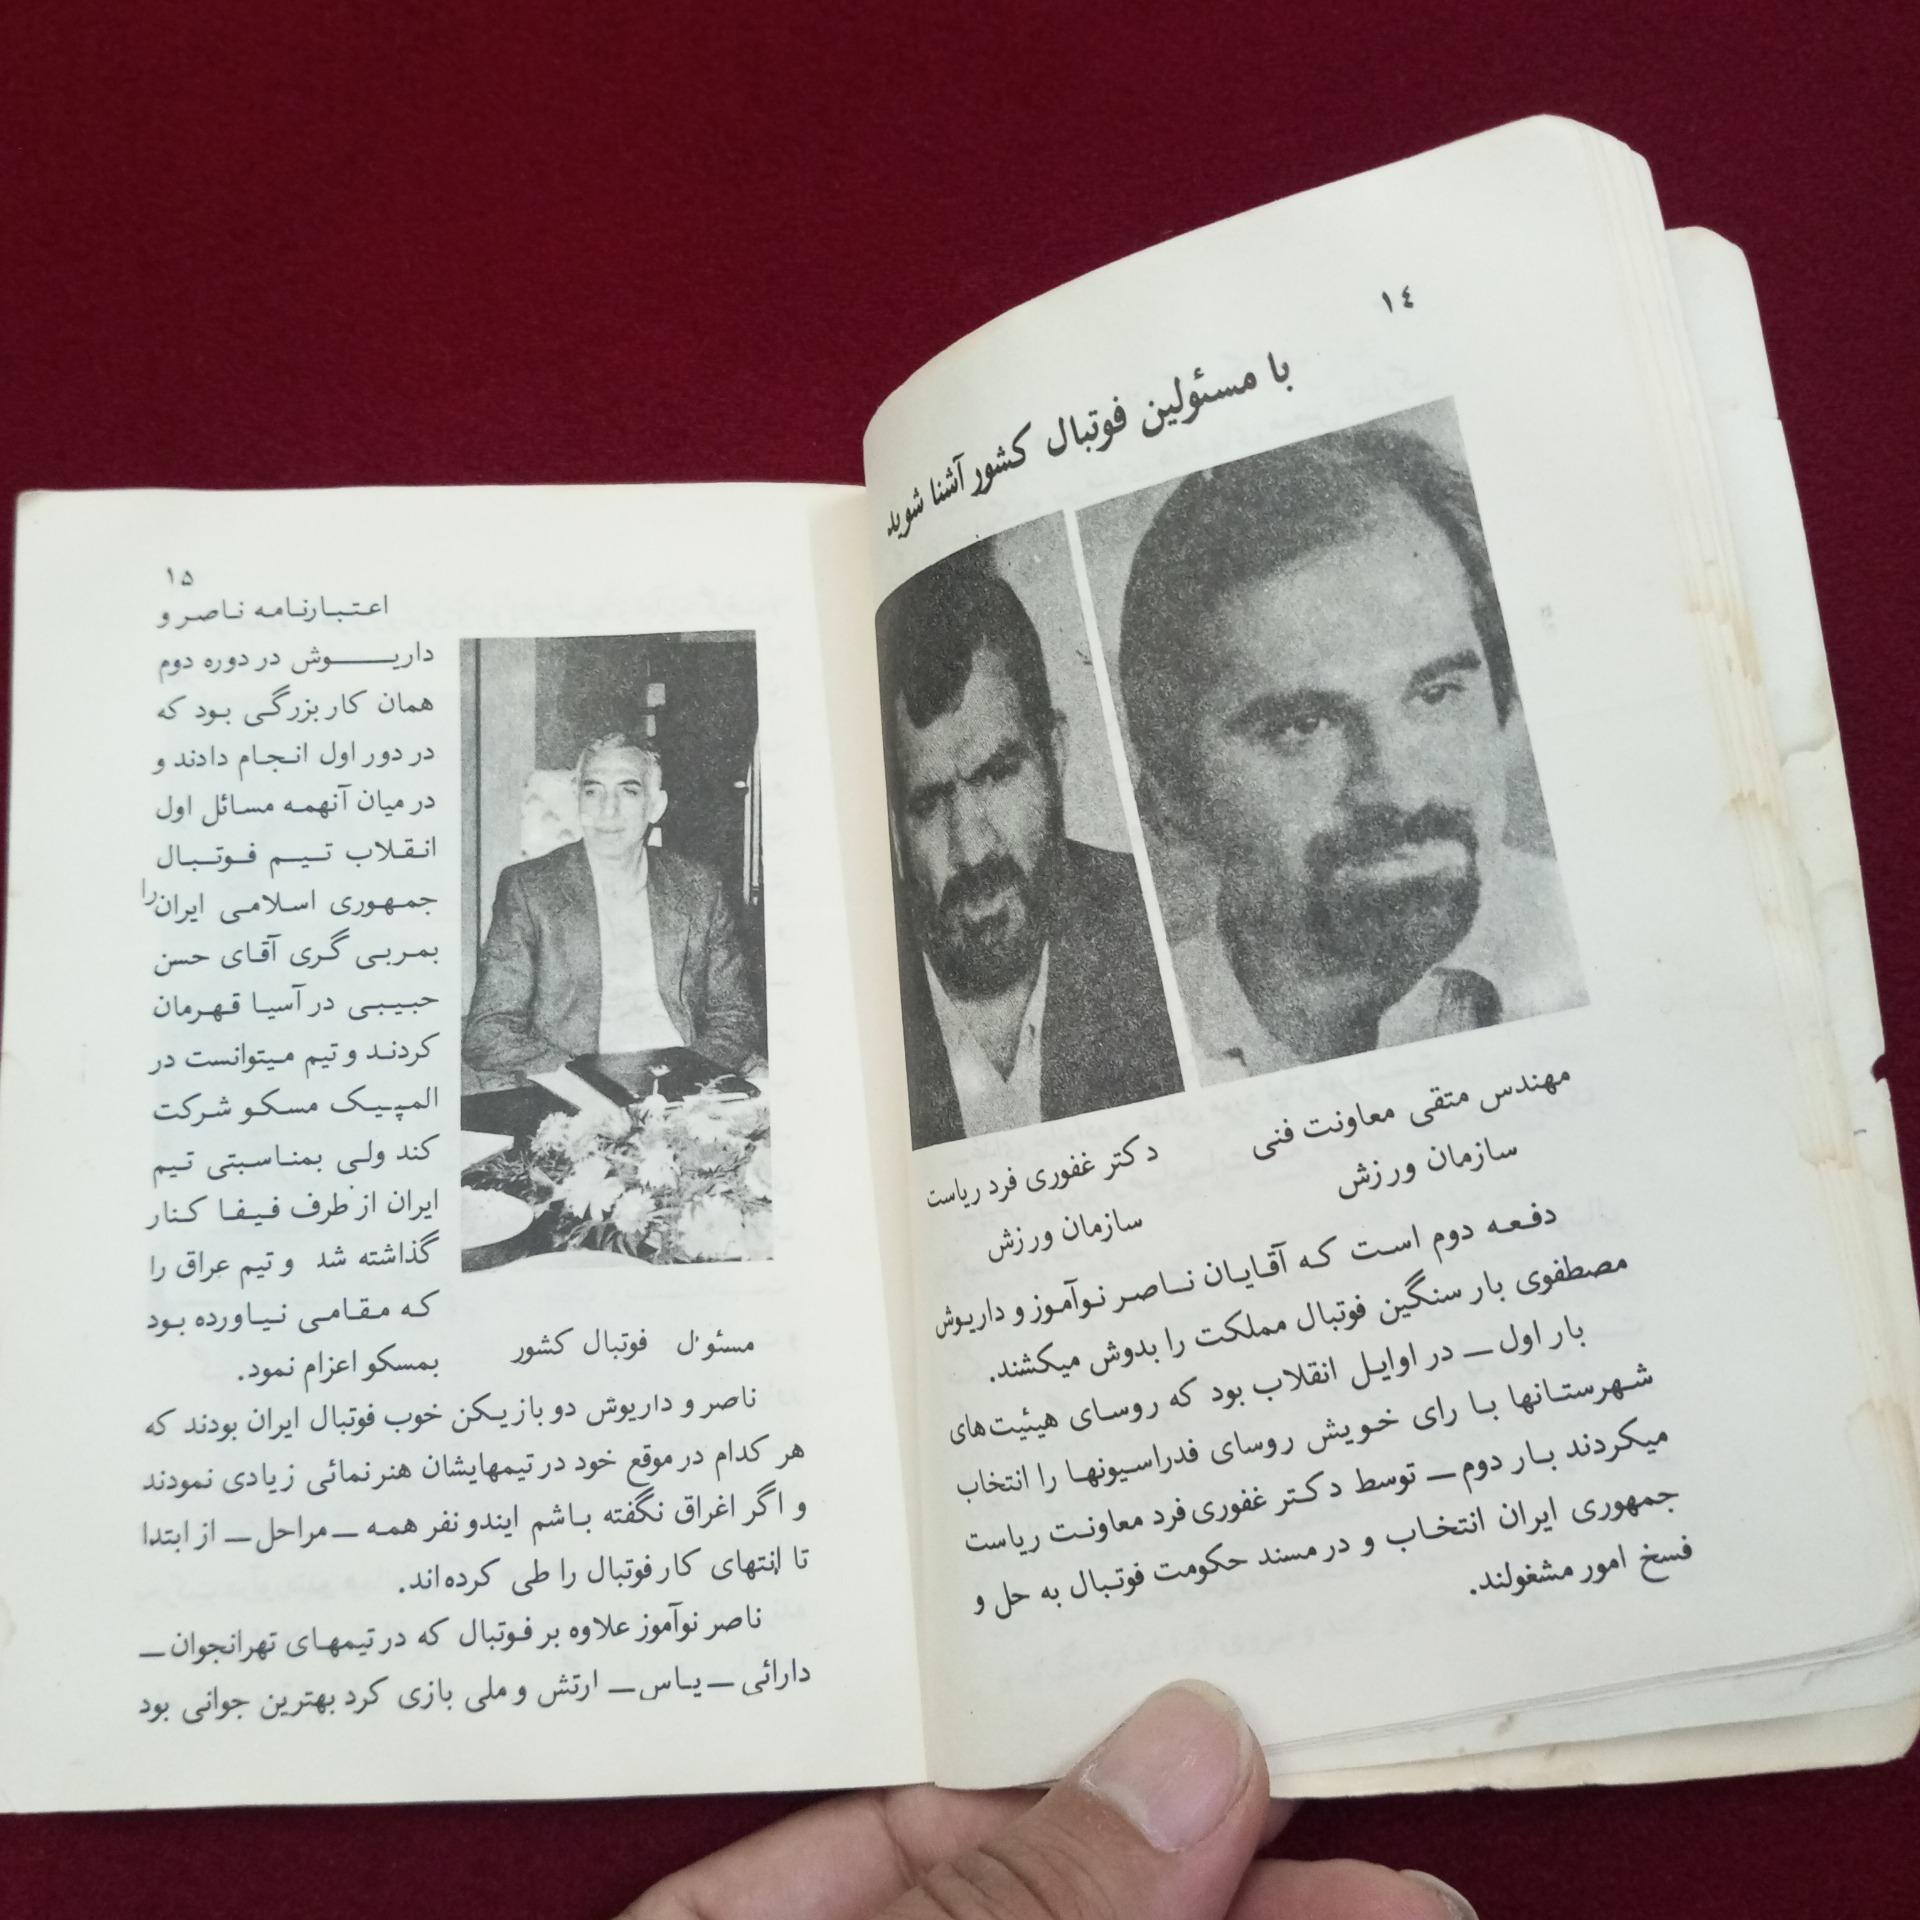 ١٤
با مسئولین فوتبال کشور آشنا شوید
مهندس متقی معاونت فنی
سازمان ورزش
دکتر غفوری فرد ریاست
سازمان ورزش
دفعه دوم است که آقایان ناصر نوآموز و داریوش
مصطفوی بار سنگین فوتبال مملکت را بدوش میکشند.
بار اول ـ در اوایل انقلاب بود که روسای هیئیت‌های
شهرستانها با رای خویش روسای فدراسیونها را انتخاب
میکردند بار دوم ـ توسط دکتر غفوری فرد معاونت ریاست
جمهوری ایران انتخاب و در مسند حکومت فوتبال به حل و
فسخ امور مشغولند.
١٥
اعتبارنامه ناصر و
داریوش در دوره دوم
همان کار بزرگی بود که
در دور اول انجام دادند و
در میان آنهمه مسائل اول
انقلاب تیم فوتبال
جمهوری اسلامی ایران را
بمربی گری آقای حسن
حبیبی در آسیا قهرمان
کردند و تیم میتوانست در
المپیک مسکو شرکت
کند ولی بمناسبتی تیم
ایران از طرف فیفا کنار
گذاشته شد و تیم عراق را
که مقامی نیاورده بود
بمسکو اعزام نمود.
مسئول فوتبال کشور
ناصر و داریوش دو بازیکن خوب فوتبال ایران بودند که
هر کدام در موقع خود در تیمهایشان هنرنمائی زیادی نمودند
و اگر اغراق نگفته باشم ایندو نفر همه ـ مراحل ـ از ابتدا
تا انتهای کار فوتبال را طی کرده‌اند.
ناصر نوآموز علاوه بر فوتبال که در تیمهای تهرانجوان ـ
دارائی ـ یاس ـ ارتش و ملی بازی کرد بهترین جوانی بود